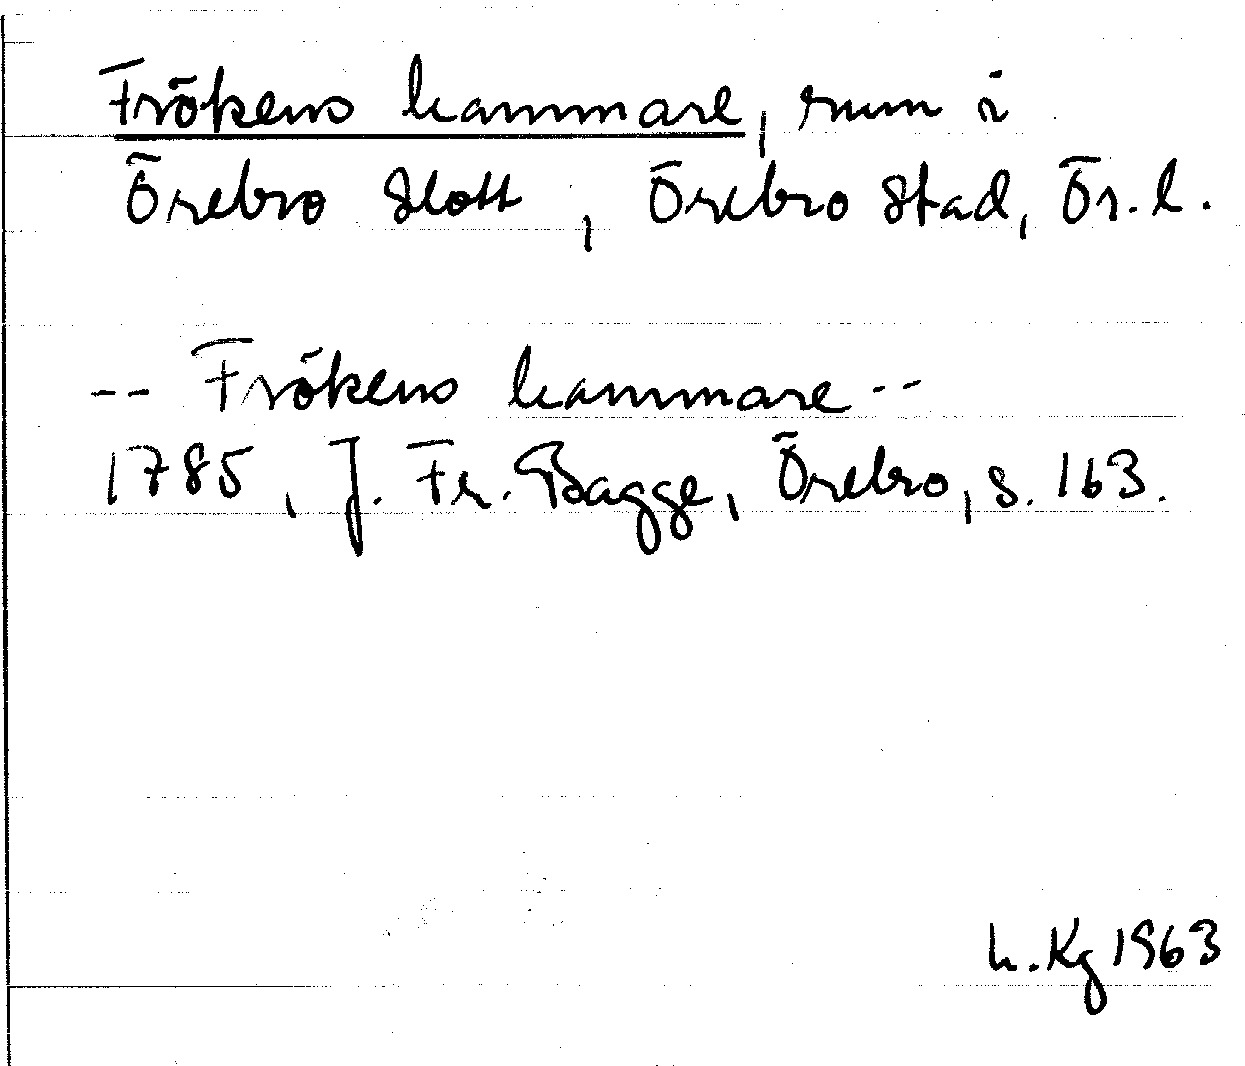 Frökens kammare, rum i
Örebro slott, Örebro stad, Ör. l.
-- Frökens kammare --
1785, J. Fr. Bagge, Örebro, s. 163.
h. Kg 1963